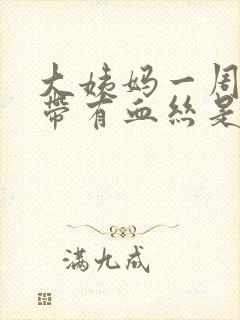 大姨妈一周
带有血丝是
满九成